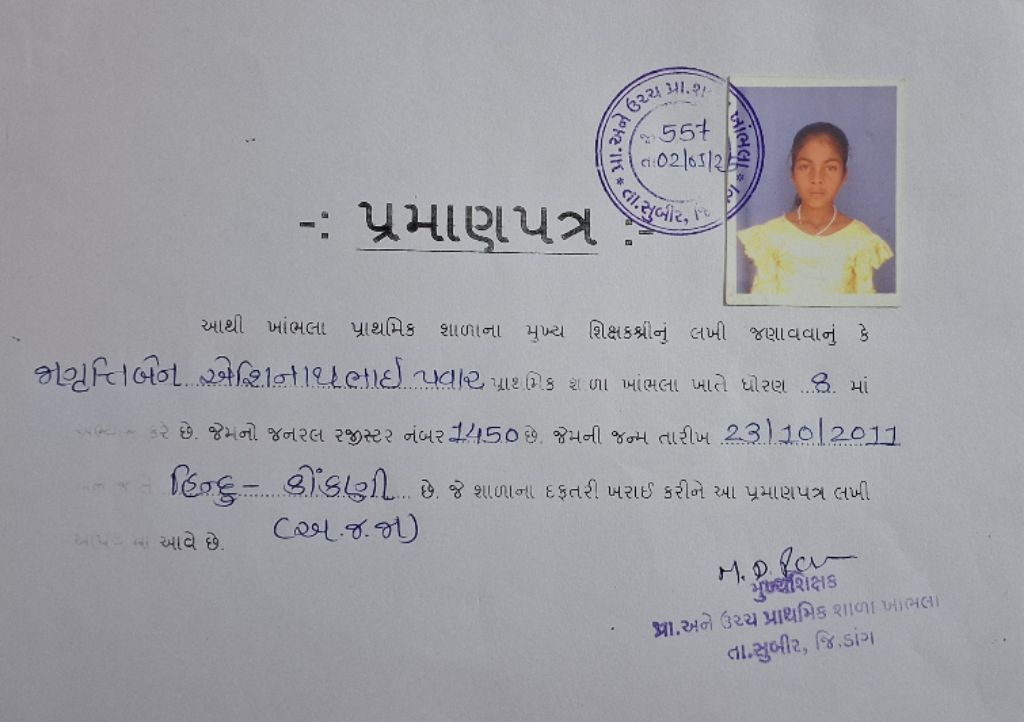 * પ્રા.અને ઉચ્ચ પ્રા.શા ખાંભલા * તા.સુબીર, જિ
જા. 557
તા.02/05/2
-: પ્રમાણપત્ર :-
આથી ખાંભલા પ્રાથમિક શાળાના મુખ્ય શિક્ષકશ્રીનું લખી જણાવવાનું કે
જાગૃત્તિબેન એશિનાથભાઈ પવાર પ્રાથમિક શાળા ખાંભલા ખાતે ધોરણ 8 માં
અભ્યાસ કરે છે. જેમનો જનરલ રજીસ્ટર નંબર 1450 છે. જેમની જન્મ તારીખ 23/10/2011
અને જાતિ હિન્દુ - કોંકણી છે. જે શાળાના દફતરી ખરાઈ કરીને આ પ્રમાણપત્ર લખી
(અ.જ.જા)
આપવામાં આવે છે.
M. D.
મુખ્યશિક્ષક
પ્રા.અને ઉચ્ચ પ્રાથમિક શાળા ખાંભલા
તા.સુબીર, જિ.ડાંગ